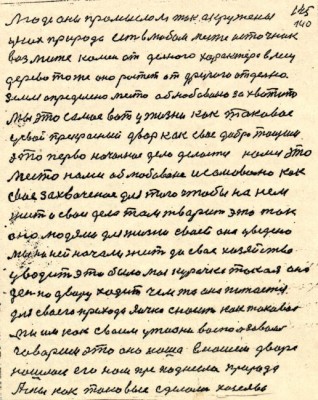 145
140
Люди они промыслом так окружены
у них природа есть в любом месте источник
возьмите камень от деного характера в лесу
дерево тоже оно ростет от другого отдельно.
Земли определено место облюбовано захватить
Мы это самое вот у жизни как таковое
свой прекрасный двор как свое добро тощим
это перво начальное дело делается нами это
место нами облюбовано и основано как
свое захваченое для того чтобы на нем
жить и свои дела там творить это так
оно людями для жизни своей оно введено
мы на ней начали жить да свое хозяйство
уводить это было мы курочка такая она
ден по двору ходит чем то она питается
для своего прихода яичко сносить как таковое
мы им как своим у жизни воспользовались
говорим это она наша в нашем дворе
нашлось его нам преподнесла природа
А мы как таковые сделали хозяева